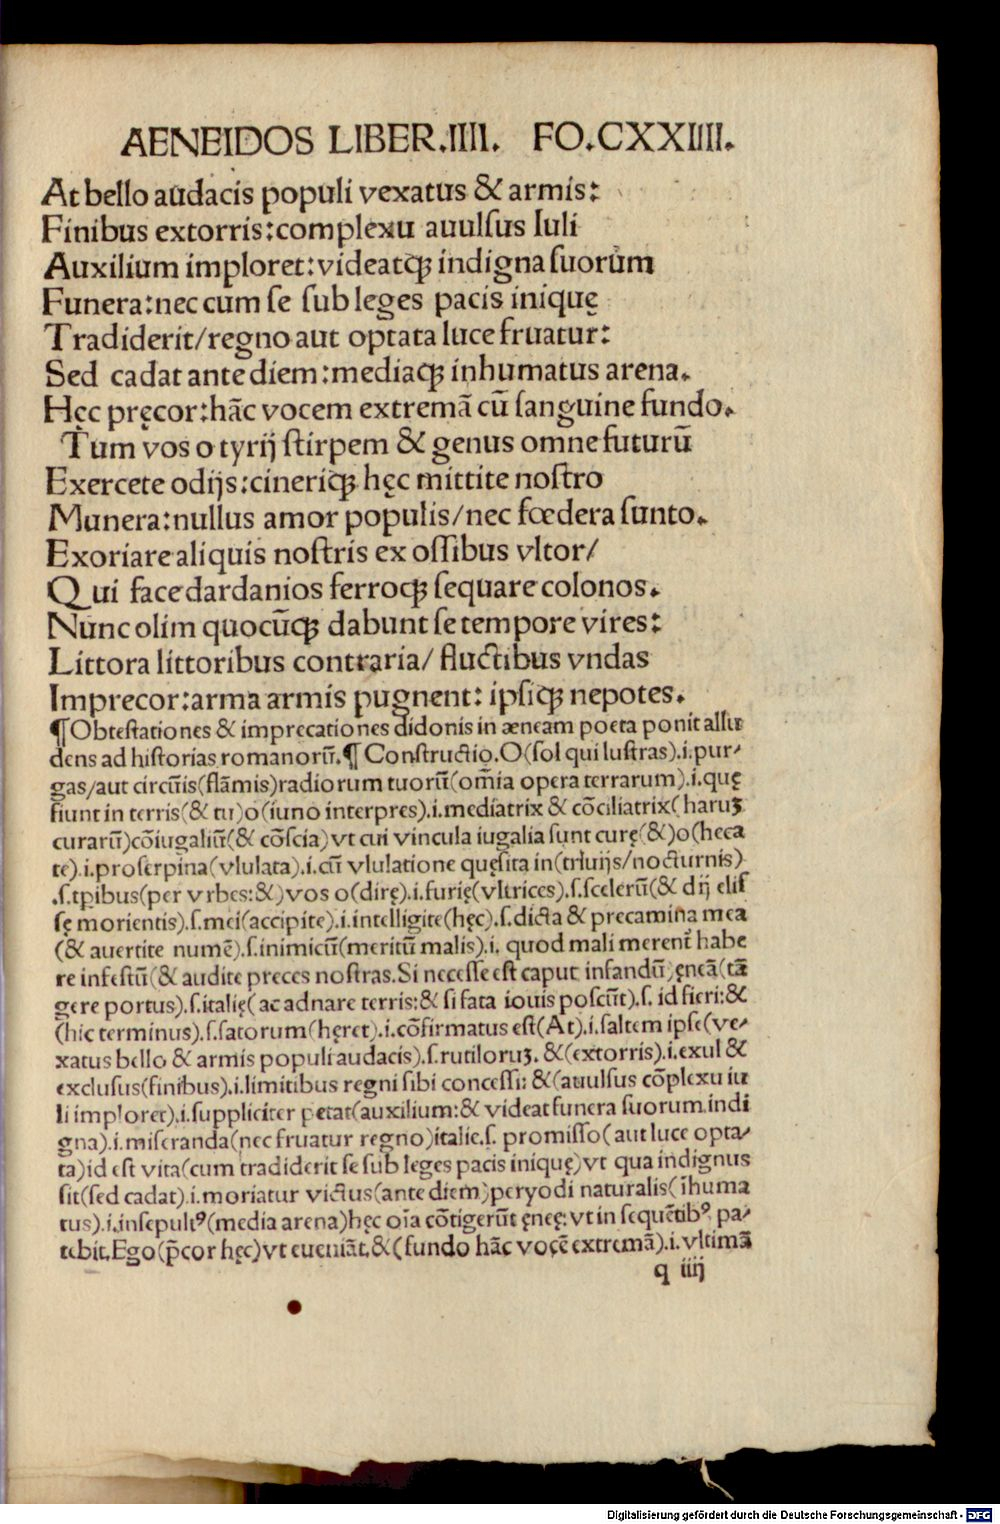 AENEIDOS LIBER.IIII. FO.CXXIIII.
At bello audacis populi vexatus & armis:
Finibus extorris:complexu auulsus Iuli
Auxilium imploret:videatqꝫ indigna suorum
Funera:nec cum se sub leges pacis iniquę
Tradiderit/regno aut optata luce fruatur:
Sed cadat ante diem:mediaqꝫ inhumatus arena.
Hęc pręcor:hāc vocem extremā cū sanguine fundo.
Tum vos o tyrij stirpem & genus omne futurū
Exercete odijs:cineriqꝫ hęc mittite nostro
Munera:nullus amor populis/nec fœdera sunto.
Exoriare aliquis nostris ex ossibus vltor/
Qui face dardanios ferroqꝫ sequare colonos.
Nunc olim quocūqꝫ dabunt se tempore vires:
Littora littoribus contraria/ fluctibus vndas
Imprecor:arma armis pugnent: ipsiqꝫ nepotes.
¶Obtestationes & imprecationes didonis in æneam poeta ponit allu
dens ad historias romanorū.¶ Constructio.O(sol qui lustras).i.pur⸗
gas/aut circūis(flāmis)radiorum tuorū(om̄ia opera terrarum).i.quę
fiunt in terris(& tu)o(iuno interpres).i.mediatrix & cōciliatrix(haruꝫ
curarū)cōiugaliū(& cōscia)vt cui vincula iugalia sunt curę(&)o(heca
te).i.proserpina(vlulata).i.cū vlulatione quęsita in(triuijs/nocturnis)
.s.tꝑibus(per vrbes:&)vos o(dirę).i.furię(vltrices).s.scelerū(& dij elis
sę morientis).s.mei(accipite).i.intelligite(hęc).s.dicta & precamina mea
(& auertite numē).s.inimicū(meritū malis).i. quod mali merent᷑ habe
re infestū(& audite preces nostras.Si necesse est caput infandū)ęneā(tā
gere portus).s.italię(ac adnare terris:& si fata iouis poscūt).s. id fieri:&
(hic terminus).s.fatorum(hęret).i.cōfirmatus est(At).i.saltem ipse(ve⸗
xatus bello & armis populi audacis).s.rutiloruꝫ. &(extorris).i.exul &
exclusus(finibus).i.limitibus regni sibi concessi: &(auulsus cōplexu iu
li imploret).i.suppliciter petat(auxilium:& videat funera suorum indi
gna).i.miseranda(nec fruatur regno)italie.s. promisso(aut luce opta⸗
ta)id est vita(cum tradiderit se sub leges pacis iniquę)vt qua indignus
sit(sed cadat).i.moriatur victus(ante diem)peryodi naturalis(īhuma
tus).i.insepultꝰ(media arena)hęc oīa cōtigerūt ęneę:vt in sequētibꝰ pa⸗
tebit.Ego(p̄cor hęc)vt eueniāt.&(fundo hāc vocē extremā).i.vltimā
q iiij
Digitalisierung gefördert durch die Deutsche Forschungsgemeinschaft - DFG